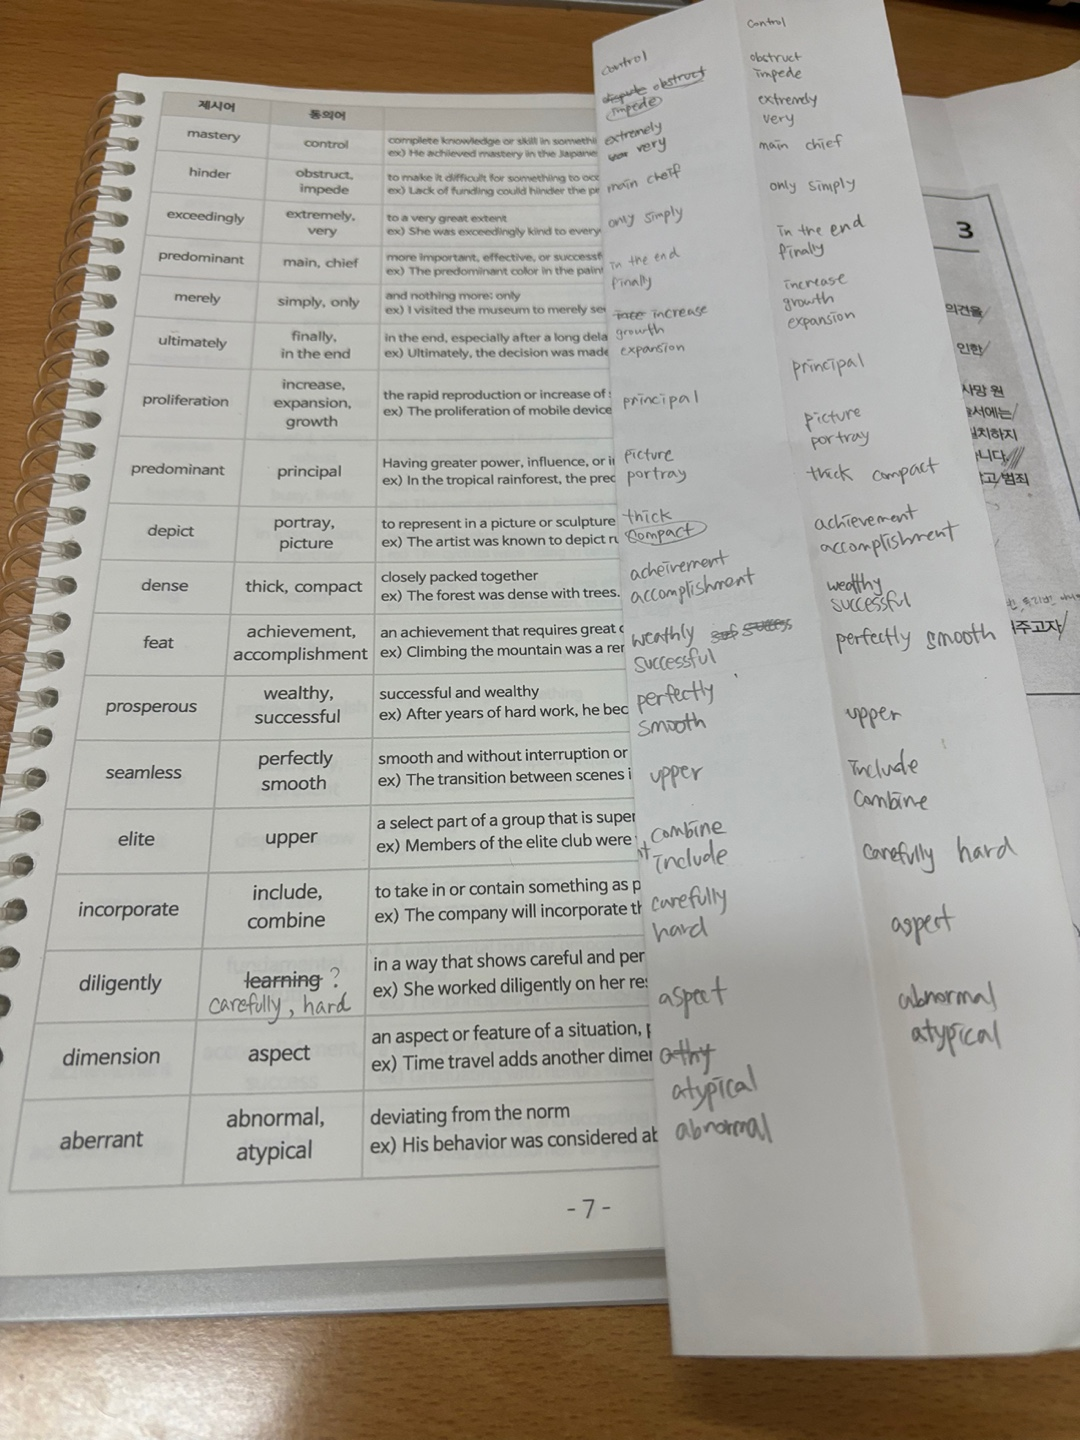 제시어
동의어
mastery
control
complete knowledge or skill in somethi
ex) He achieved mastery in the Japane
hinder
obstruct,
impede
to make it difficult for something to occ
ex) Lack of funding could hinder the pr
exceedingly
extremely,
very
to a very great extent
ex) She was exceedingly kind to every
predominant
main, chief
more important, effective, or successf
ex) The predominant color in the paint
merely
simply, only
and nothing more; only
ex) I visited the museum to merely see
ultimately
finally,
in the end
in the end, especially after a long dela
ex) Ultimately, the decision was made
proliferation
increase,
expansion,
growth
the rapid reproduction or increase of
ex) The proliferation of mobile device
predominant
principal
Having greater power, influence, or i
ex) In the tropical rainforest, the pred
depict
portray,
picture
to represent in a picture or sculpture
ex) The artist was known to depict ru
dense
thick, compact
closely packed together
ex) The forest was dense with trees.
feat
achievement,
accomplishment
an achievement that requires great c
ex) Climbing the mountain was a rer
prosperous
wealthy,
successful
successful and wealthy
ex) After years of hard work, he bec
seamless
perfectly
smooth
smooth and without interruption or
ex) The transition between scenes i
elite
upper
a select part of a group that is super
ex) Members of the elite club were
incorporate
include,
combine
to take in or contain something as p
ex) The company will incorporate th
diligently
learning ?
carefully, hard
in a way that shows careful and per
ex) She worked diligently on her res
dimension
aspect
an aspect or feature of a situation,
ex) Time travel adds another dimer
aberrant
abnormal,
atypical
deviating from the norm
ex) His behavior was considered ab
- 7 -
control
obstruct
impede
extremely
very
main cheif
only simply
in the end
finally
increase
growth
expansion
principal
picture
portray
thick
compact
acheivement
accomplishment
weathly
successful
perfectly
smooth
upper
combine
include
carefully
hard
aspect
athy
atypical
abnormal
control
obstruct
impede
extremely
very
main chief
only simply
in the end
finally
increase
growth
expansion
principal
picture
portray
thick compact
achievement
accomplishment
wealthy
successful
perfectly smooth
upper
include
combine
carefully hard
aspect
abnormal
atypical
3
의견을
인한
사망 원
서에는
일치하지
니다
고/범죄
주고자